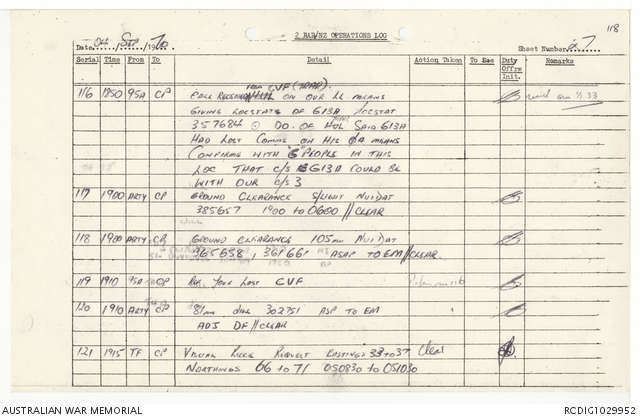 118
2 RAR/NZ OPERATIONS LOG
Date 04 / Sep / 1970
Sheet Number 27
Serial Time From To Detail Action Taken To Sec Duty Offrs Init. Remarks
FROM CVF (TRAP)
116 1850 95A CP CALL ON OUR LL MEANS
GIVING LOCSTATS OF G13A LOCSTAT
357684 DO. OF HQL SAID G13A
HAD LOST COMMS ON HIS MEANS
CONFIRM WITH PEOPLE IN THIS
LOC THAT C/S G13A COULD BE
WITH OUR C/S 3
117 1900 ARTY CP GROUND CLEARANCE S/LIGHT NUI DAT
385657 1900 TO 0600 // CLEAR
118 1900 ARTY CP GROUND CLEARANCE 105MM NUI DAT
365658, 361661 ASAP TO EM // CLEAR
119 1910 95A CP YOUR LAST CVF
120 1910 ARTY CP 81MM 302751 ASP TO EM
ADJ DF // CLEAR
121 1915 TF CP VISUAL RECCE REQUEST EASTINGS 33 TO 37 Clear
NORTHINGS 66 TO 71 050830 TO 051030
AUSTRALIAN WAR MEMORIAL
RCDIG1029952